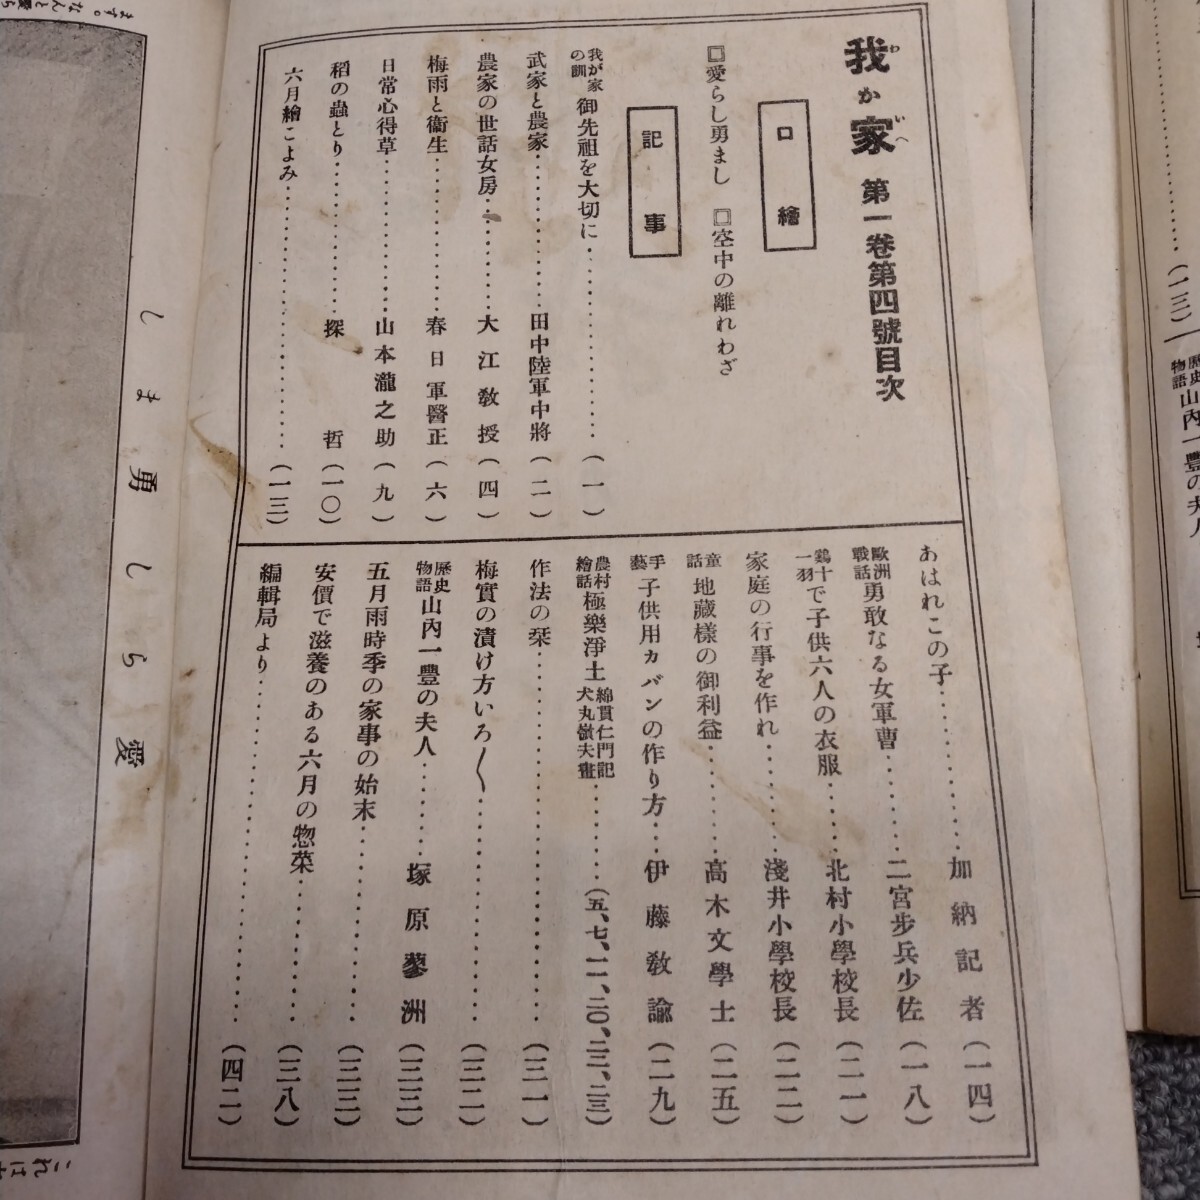 我か家 第一卷第四號目次
わ いへ
口繪
□愛らし勇まし □空中の離れわざ
記事
我が家の訓 御先祖を大切に……………(一)
武家と農家…………田中陸軍中將(二)
農家の世話女房…………大江敎授(四)
梅雨と衞生…………春日軍醫正(六)
日常心得草…………山本瀧之助(九)
稻の蟲とり…………探哲(一〇)
六月繪こよみ……………(一三)
あはれこの子…………加納記者(一四)
歐洲戰話 勇敢なる女軍曹…………二宮步兵少佐(一八)
鷄十一羽で子供六人の衣服…………北村小學校長(二一)
家庭の行事を作れ…………淺井小學校長(二二)
童話 地藏樣の御利益…………高木文學士(二五)
手藝 子供用カバンの作り方…伊藤敎諭(二九)
農村繪話 極樂淨土 綿貫仁門記 犬丸嶺夫畫…………(五、七、一一、二〇、二二、二三)
作法の栞……………(三一)
梅實の漬け方いろ〱……………(三二)
歷史物語 山內一豐の夫人…………塚原蓼洲(三三)
五月雨時季の家事の始末……………(三三)
安價で滋養のある六月の惣菜……………(三八)
編輯局より……………(四二)
しま勇しら愛
ます。なんと
これは
(一三)
歷史物語 山內一豐の夫人